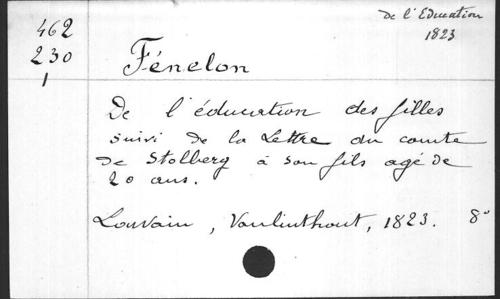 de l'Education
1823
462
230
1
Fénelon
De l'éducation des filles
suivi de la Lettre du comte
de Stolberg à son fils agé de
20 ans.
Louvain, Vanlinthout, 1823. 8°